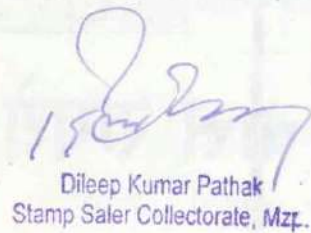 Dileep Kumar Pathak
Stamp Saler Collectorate, Mzp.